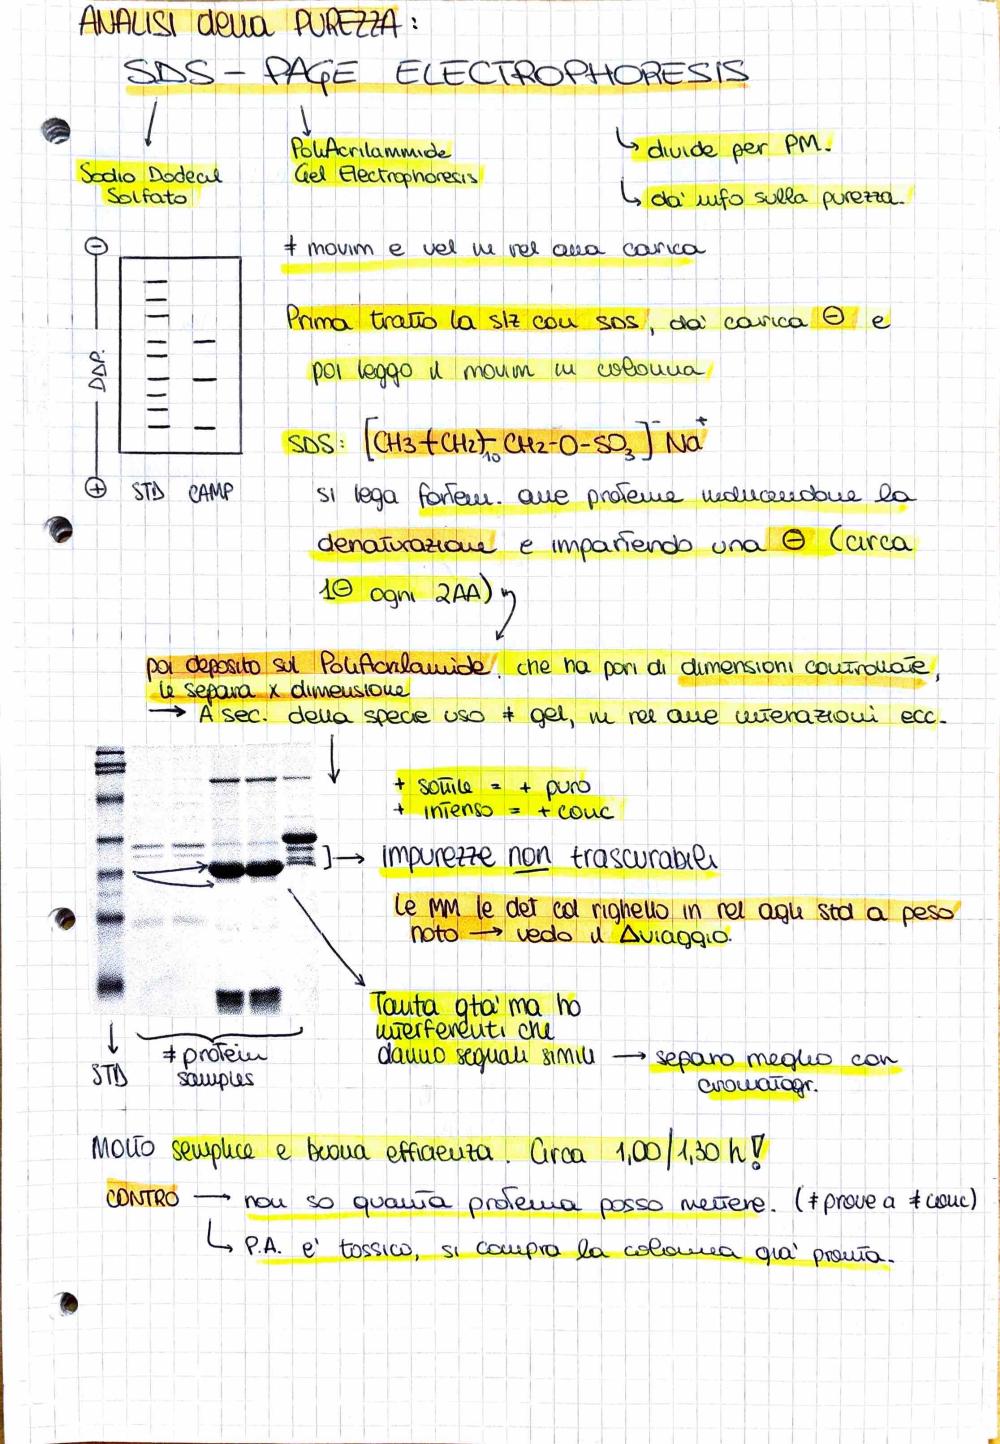 ANALISI della PUREZZA:
SDS - PAGE ELECTROPHORESIS
Sodio Dodecil
Solfato
PoliAcrilammide
Gel Electrophoresis
↳ divide per PM.
↳ da' info sulla purezza.
≠ movim e vel in rel alla carica
Prima tratto la slz con SDS, da' carica ⊖ e
poi leggo il movim in colonna
⊖
DDP.
⊕
STD CAMP
SDS: [CH3+CH2)10 CH2-O-SO3]⁻ Na⁺
si lega fortem. alle proteine inducendone la
denaturazione e impartendo una ⊖ (circa
1⊖ ogni 2AA)
poi deposito sul PoliAcrilamide, che ha pori di dimensioni controllate,
le separa x dimensione
→ A sec. della specie uso ≠ gel, in rel alle interazioni ecc.
+ sottile = + puro
+ intenso = + conc
]→ impurezze non trascurabili
Le MM le det col righello in rel agli std a peso
noto → vedo il Δviaggio.
Tanta qta' ma ho
interferenti che
danno segnali simili → separo meglio con
cromatogr.
STD
≠ protein
samples
Molto semplice e buona efficienza. Circa 1,00/1,30 h!
CONTRO → non so quanta proteina posso mettere. (≠ prove a ≠ conc)
↳ P.A. e' tossico, si compra la colonna gia' pronta.